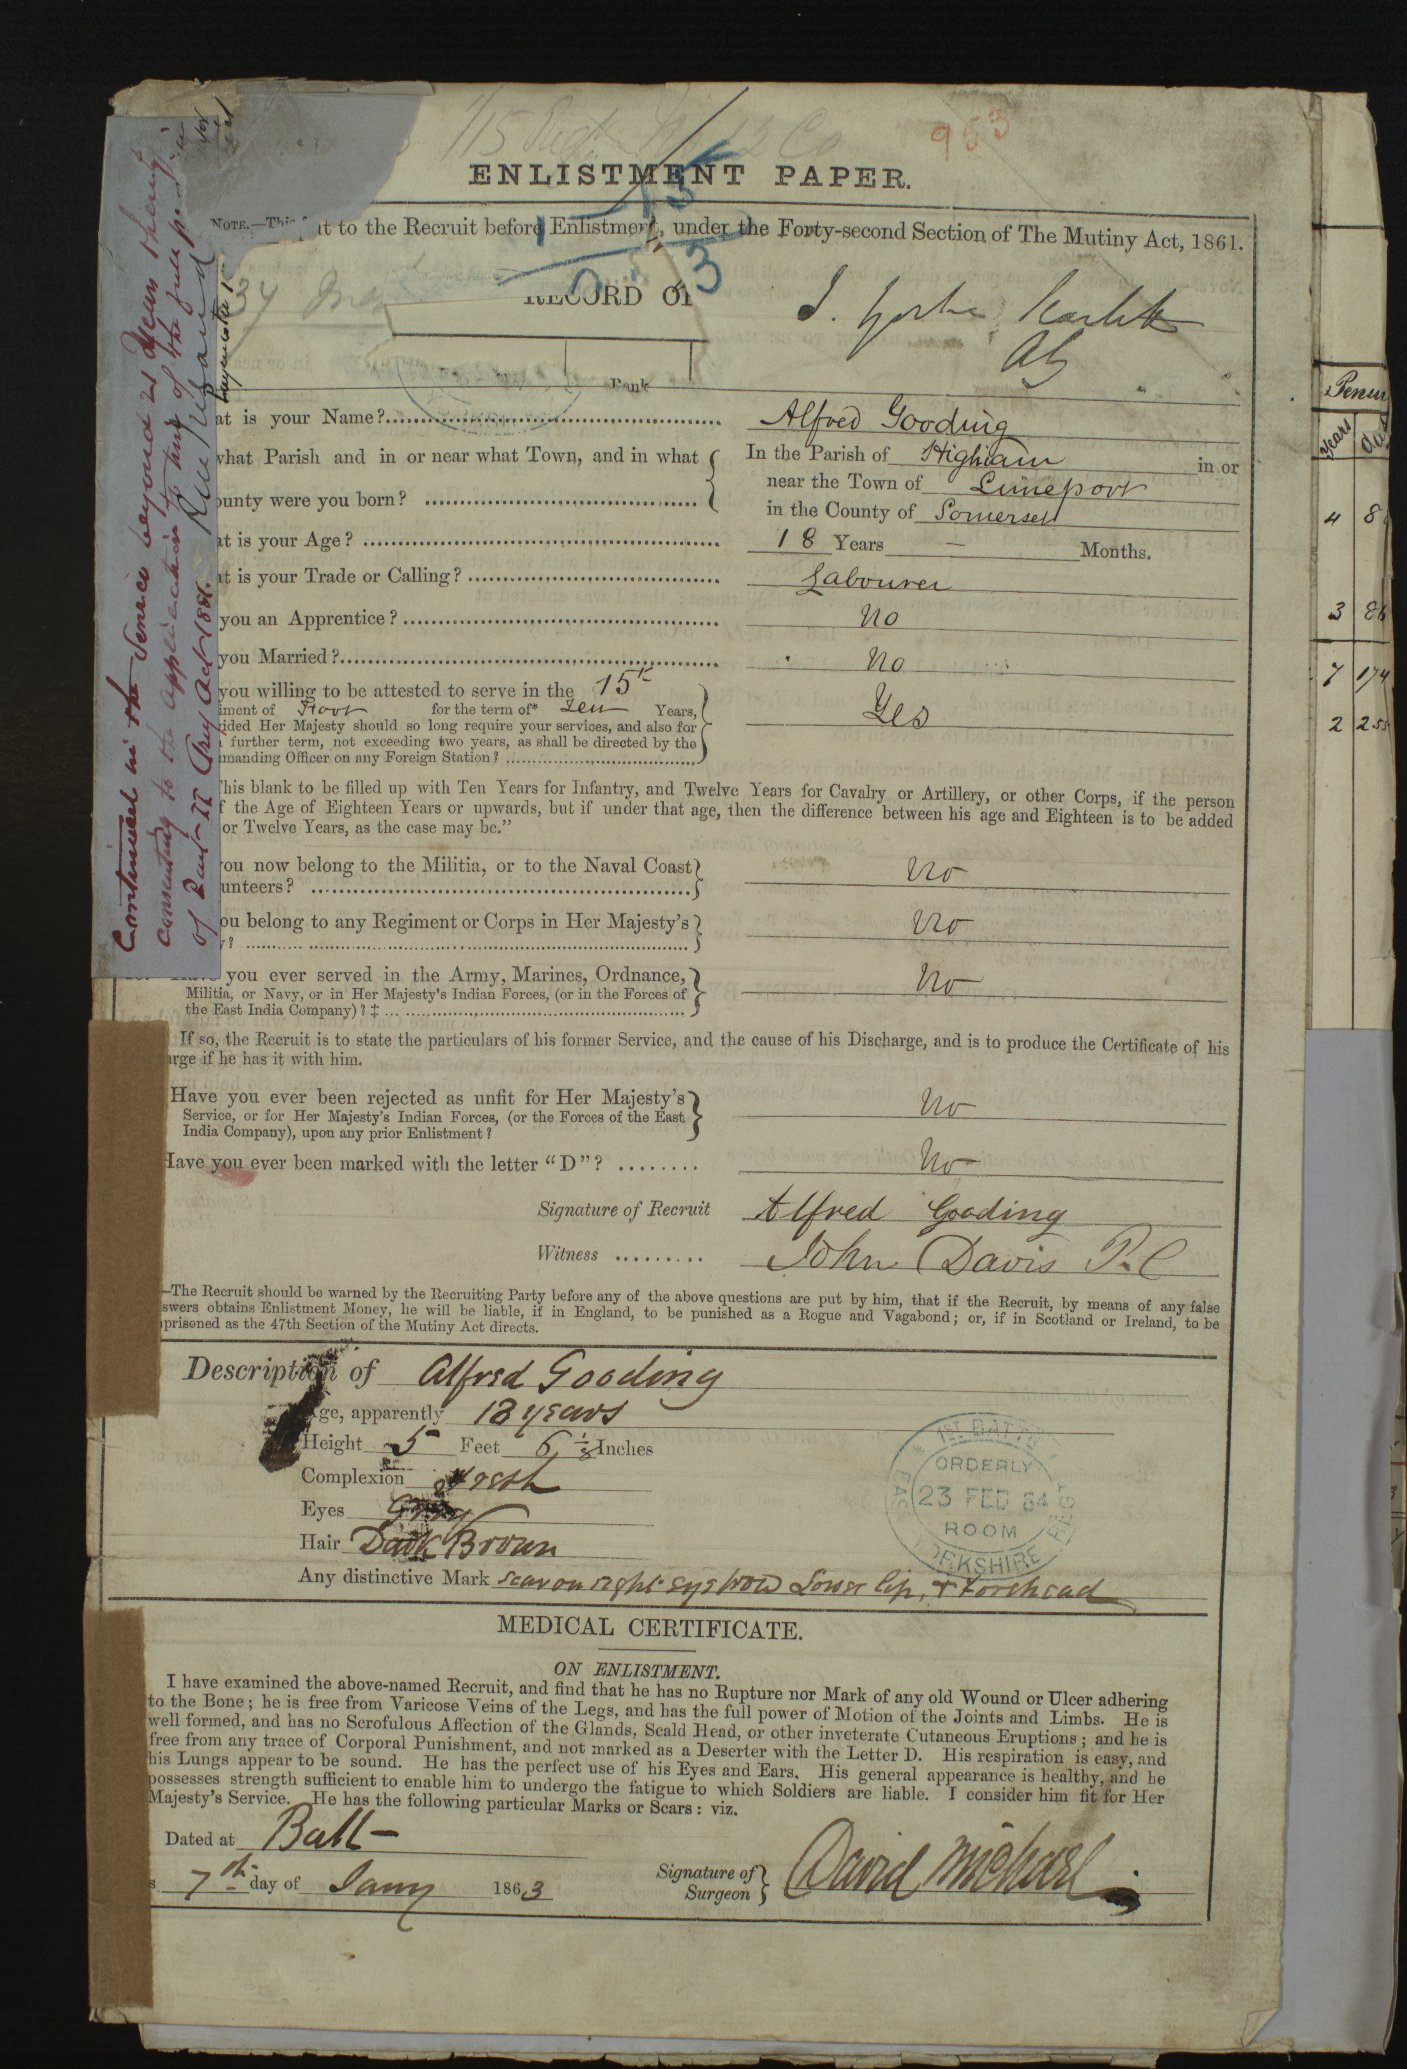 1/15 Regt 12 Co
953
ENLISTMENT PAPER.
NOTE.—This put to the Recruit before Enlistment, under the Forty-second Section of The Mutiny Act, 1861.
34
RECORD OF
Rank
at is your Name? Alfred Gooding
what Parish and in or near what Town, and in what In the Parish of Higham in or
near the Town of Limeport
ounty were you born? in the County of Somerset
at is your Age? 18 Years — Months.
at is your Trade or Calling? Labourer
you an Apprentice? No
you Married? No
you willing to be attested to serve in the 15th
iment of Foot for the term of* Ten Years, Yes
ided Her Majesty should so long require your services, and also for
further term, not exceeding two years, as shall be directed by the
manding Officer on any Foreign Station?
This blank to be filled up with Ten Years for Infantry, and Twelve Years for Cavalry or Artillery, or other Corps, if the person
f the Age of Eighteen Years or upwards, but if under that age, then the difference between his age and Eighteen is to be added
or Twelve Years, as the case may be.”
you now belong to the Militia, or to the Naval Coast
unteers? No
ou belong to any Regiment or Corps in Her Majesty's
y? No
Have you ever served in the Army, Marines, Ordnance,
Militia, or Navy, or in Her Majesty's Indian Forces, (or in the Forces of No
the East India Company)? ‡
If so, the Recruit is to state the particulars of his former Service, and the cause of his Discharge, and is to produce the Certificate of his
arge if he has it with him.
Have you ever been rejected as unfit for Her Majesty's
Service, or for Her Majesty's Indian Forces, (or the Forces of the East No
India Company), upon any prior Enlistment?
Have you ever been marked with the letter “D”? No
Signature of Recruit Alfred Gooding
Witness John Davis P.C
—The Recruit should be warned by the Recruiting Party before any of the above questions are put by him, that if the Recruit, by means of any false
swers obtains Enlistment Money, he will be liable, if in England, to be punished as a Rogue and Vagabond; or, if in Scotland or Ireland, to be
prisoned as the 47th Section of the Mutiny Act directs.
Description of Alfred Gooding
Age, apparently 18 years
Height 5 Feet 6 1/8 Inches
Complexion Fresh
Eyes Grey
Hair Dark Brown
Any distinctive Mark scar on right eyebrow Lower lip, + Forehead
1ST BATTN
EAST YORKSHIRE REGT
ORDERLY
23 FEB 84
ROOM
MEDICAL CERTIFICATE.
ON ENLISTMENT.
I have examined the above-named Recruit, and find that he has no Rupture nor Mark of any old Wound or Ulcer adhering
to the Bone; he is free from Varicose Veins of the Legs, and has the full power of Motion of the Joints and Limbs. He is
well formed, and has no Scrofulous Affection of the Glands, Scald Head, or other inveterate Cutaneous Eruptions; and he is
free from any trace of Corporal Punishment, and not marked as a Deserter with the Letter D. His respiration is easy, and
his Lungs appear to be sound. He has the perfect use of his Eyes and Ears. His general appearance is healthy, and he
possesses strength sufficient to enable him to undergo the fatigue to which Soldiers are liable. I consider him fit for Her
Majesty's Service. He has the following particular Marks or Scars: viz.
Dated at Bath
s 7th day of Jany 1863 Signature of
Surgeon David Michael
Continued in the Service beyond 21 Years thereby
consenting to the application to him of the full provision
of Part II Army Act 1881.
Paymaster
Pension
Years Days
4 8
3 86
7 174
2 255